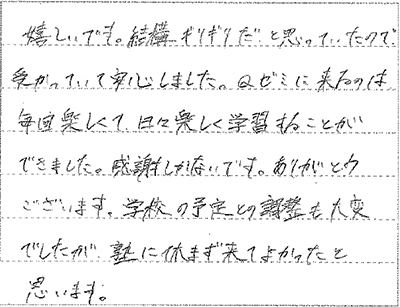 嬉しいです。結構ギリギリだと思っていたので
受かっていて安心しました。Qゼミに来るのは
毎回楽しくて、日々楽しく学習することが
できました。感謝しかないです。ありがとう
ございます。学校の予定との調整も大変
でしたが、塾に休まず来てよかったと
思います。